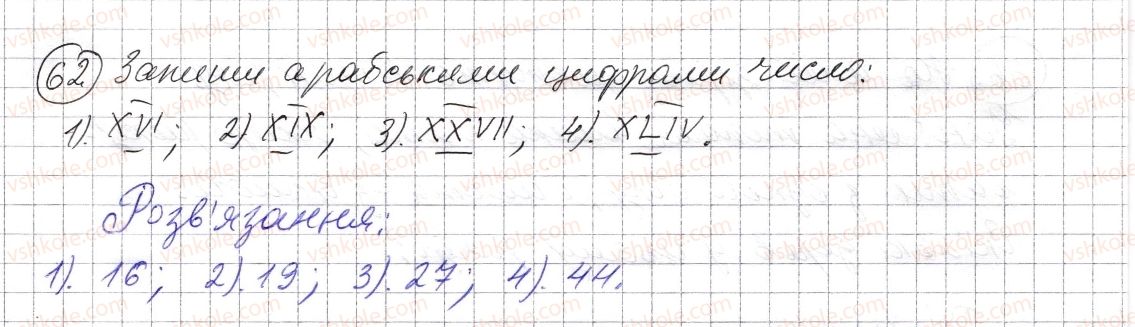 62 Запиши арабськими цифрами число:
1). XVI; 2) XIX; 3). XXVII; 4). XLIV.
Розв'язання:
1). 16; 2). 19; 3). 27; 4). 44.